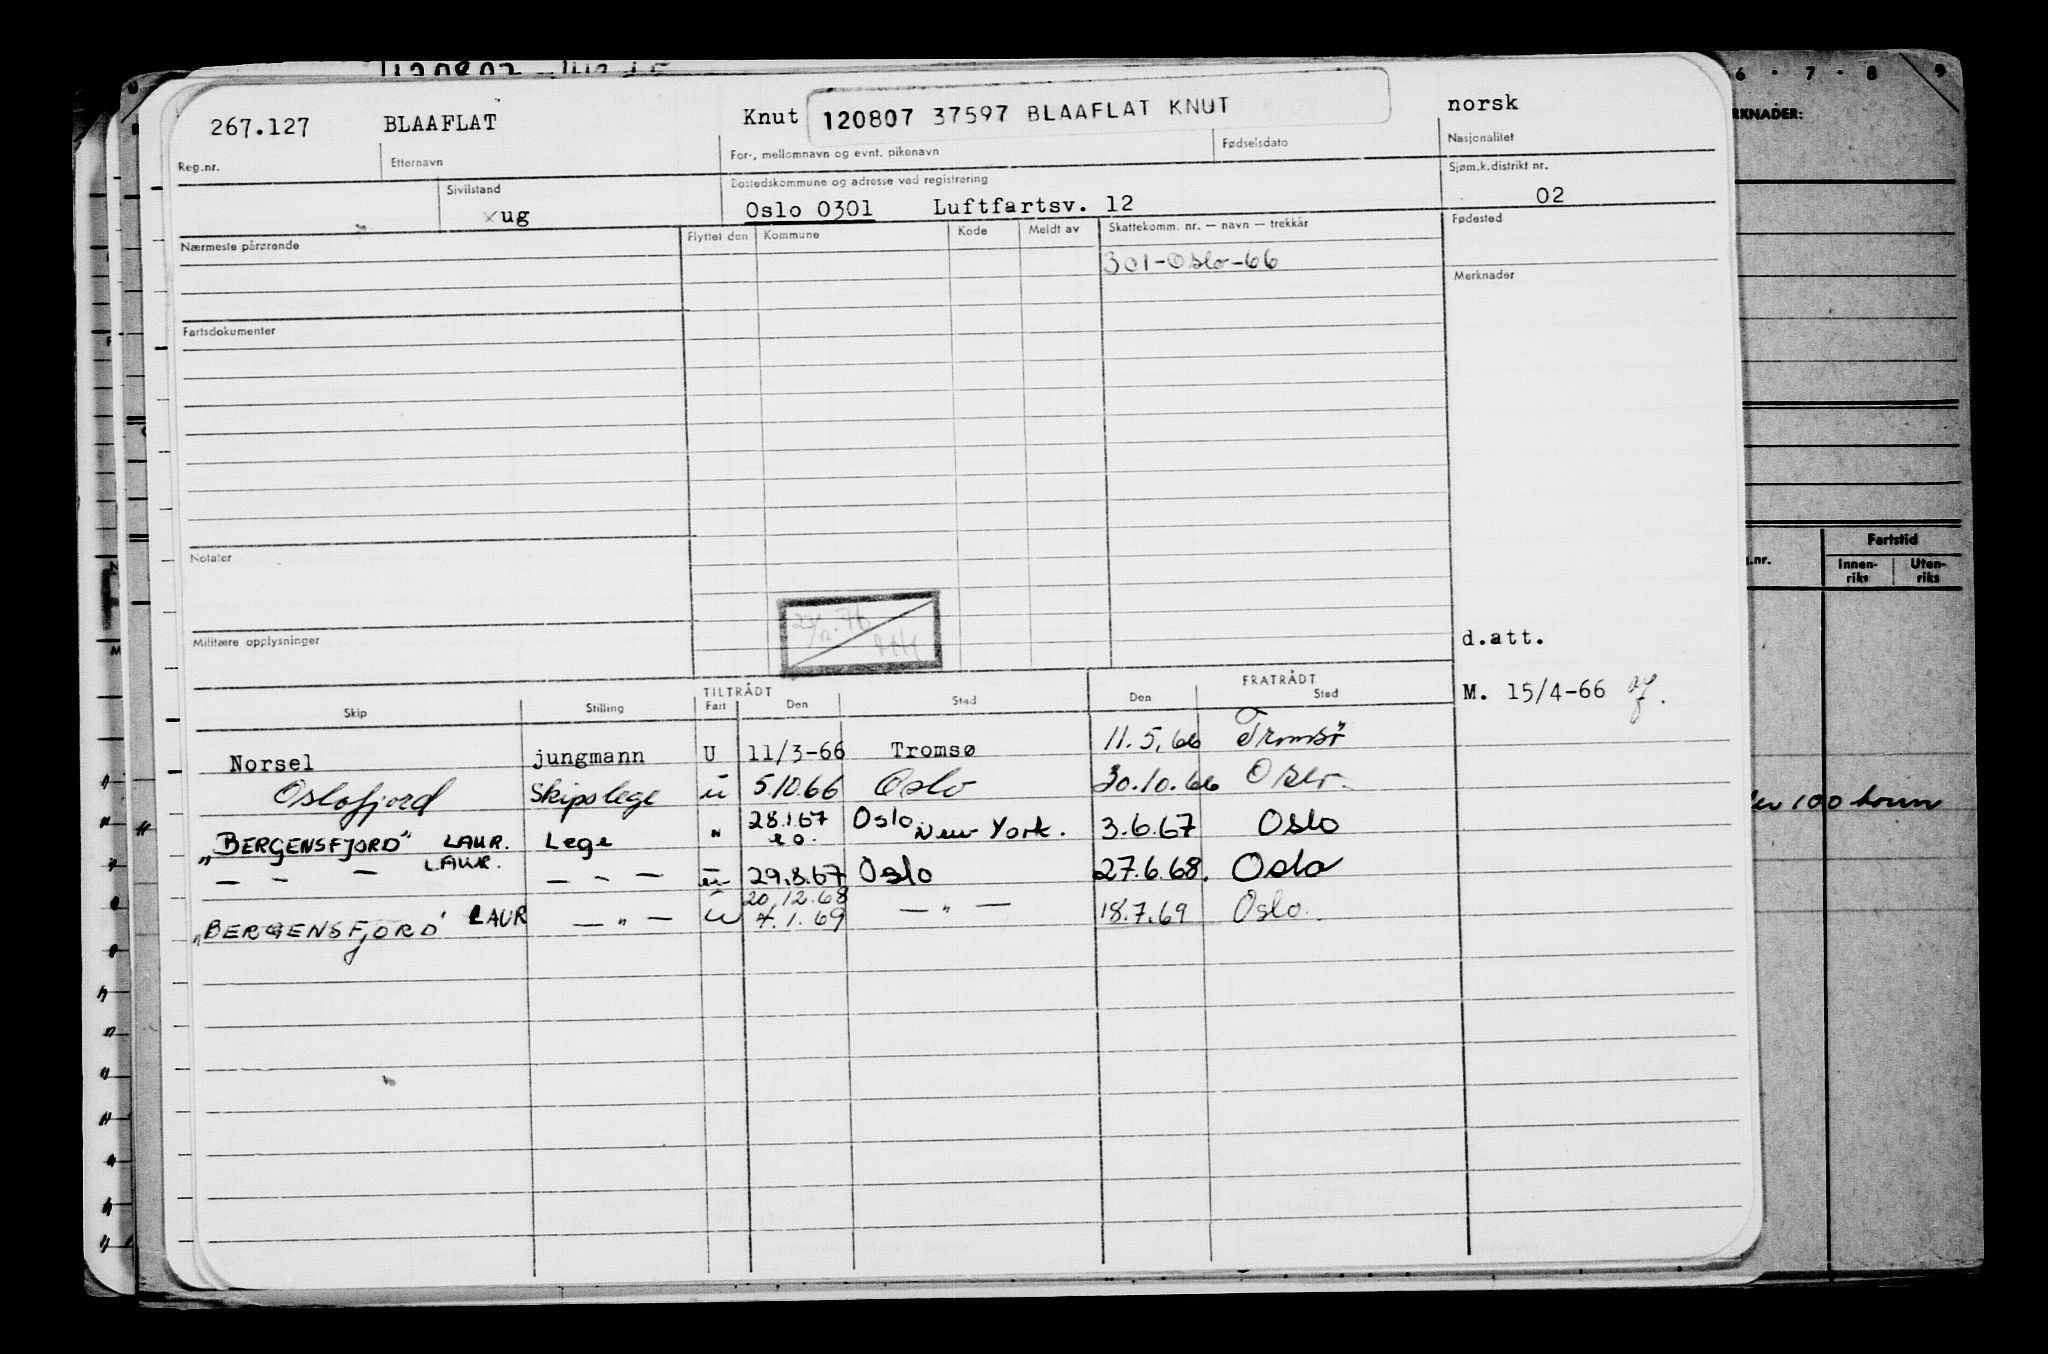 267.127 BLAAFLAT Knut 120807 37597 BLAAFLAT KNUT norsk
Reg.nr. Etternavn For-, mellomnavn og evnt. pikenavn Fødselsdato Nasjonalitet
Sivilstand Bostedskommune og adresse ved registrering Sjøm.k.distrikt nr.
xug Oslo 0301 Luftfartsv. 12 02
Nærmeste pårørende Flyttet den Kommune Kode Meldt av Skattekomm. nr. — navn — trekkår Fødested
301-Oslo-66
Merknader
Fartsdokumenter
Notater
Militære opplysninger
d.att.
M. 15/4-66
TILTRÅDT FRATRÅDT
Skip Stilling Fart Den Sted Den Sted
Norsel jungmann U 11/3-66 Tromsø 11.5.66 Tromsö
Oslofjord Skipslege u 51066 Oslo 30.10.66 Oslo
„BERGENSFJORD" LAUR. Lege " 28.1.67 Oslo New York. 3.6.67 Oslo
— - — LAUR. — - — u 29.8.67 Oslo 27.6.68. Oslo
20.12.68
„BERGENSFJORD' LAUR — „ — u 4.1.69 — „ — 18.7.69 Oslo.
6 · 7 · 8 9
RKNADER:
Fartstid
.nr. Innen-riks Uten-riks
100